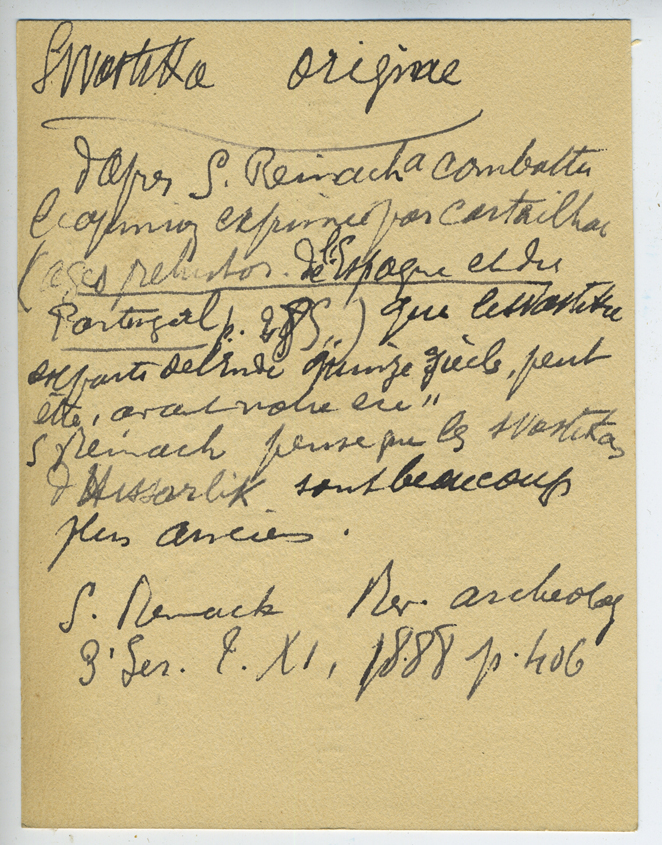 Swastika origine
d'après S. Reinach a combattu
l'opinion exprimée par Cartailhac
(ages prehistor. de l'Espagne et du
Portugal p. 285) que le swastika
est parti de l'Inde "quinze siècles, peut
être, avant notre ère"
S. Reinach pense que les swastikas
d'Hissarlik sont beaucoup
plus anciens.
S. Reinach Rev. archeolog
3e Ser. T. XI, 1888 p. 406